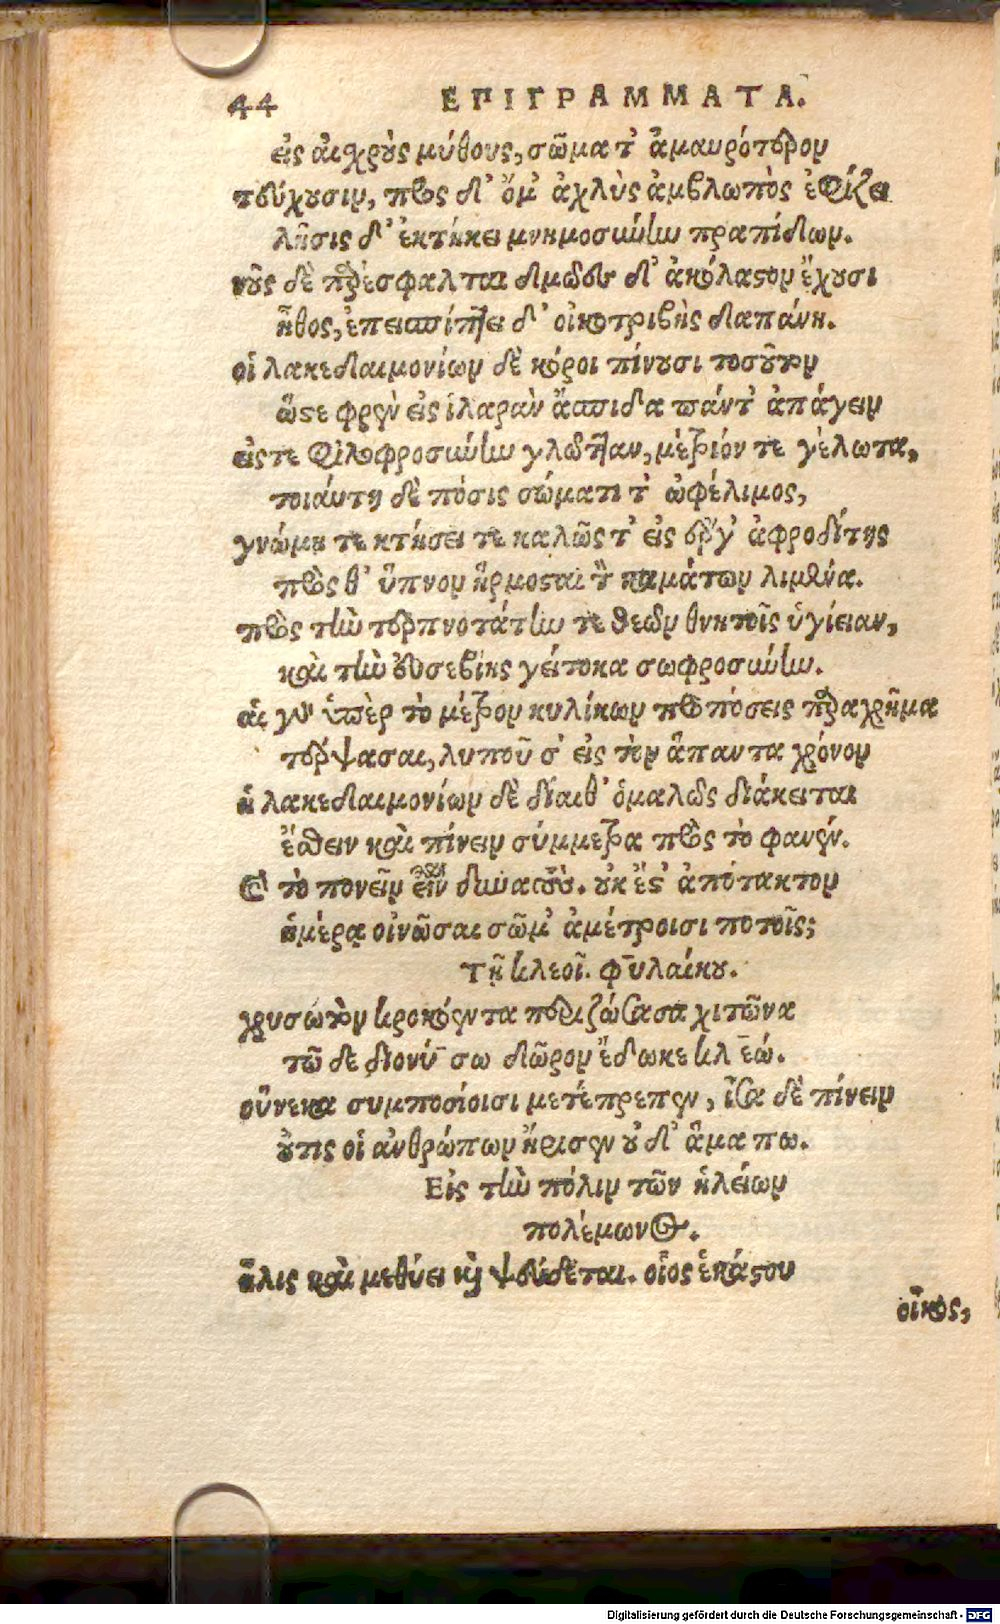 44 ΕΠΙΓΡΑΜΜΑΤΑ.
εἰς αἰσχρὸυς μύθους, σῶμα τ' ἀμαυρότερον
τεύχουσιν, πρὸς δ' ὄμ' ἀχλὺς ἀμβλωπὸς ἐφίζει
λῆσις δ' ἐκτήκει μνημοσύνην πραπίδων.
νοῦς δὲ παρέσφαλται δμῶες δ' ἀκόλαστον ἔχουσι
ἦθος, ἐπεισπίπτει δ' οἰκοτριβὴς δαπάνη.
οἱ λακεδαιμονίων δὲ κόροι πίνουσι τοσοῦτον
ὥστε φρέν' εἰς ἱλαρὰν ἄσπιδα πάντ' ἀπάγειν
εἴς τε φιλοφροσύνην γλῶτταν, μέτριόν τε γέλωτα,
τοιάυτη δὲ πόσις σώματι τ' ὠφέλιμος,
γνώμη τε κτήσει τε καλῶς τ' εἰς ἔργ' ἀφροδίτης
πρὸς θ' ὕπνον ἥρμοσται τὸν καμάτων λιμένα.
πρὸς τὴν τερπνοτάτην τε θεῶν θνητοῖς ὑγίειαν,
καὶ τὴν εὐσεβίης γείτονα σωφροσύνην.
αἱ γὰρ ὑπὲρ τὸ μέτρον κυλίκων προπόσεις παραχρῆμα
τέρψασαι, λυποῦσ' εἰς τὸν ἅπαντα χρόνον
ἡ λακεδαιμονίων δὲ δίαιθ' ὁμαλῶς διάκειται
ἔσθειν καὶ πίνειν σύμμετρα πρὸς τὸ φρονεῖν.
καὶ τὸ πονεῖν εἶναι δυνατούς. οὐκ ἔστ' ἀπότακτον
ἡμέρα οἰνῶσαι σῶμ' ἀμέτροισι ποτοῖς;
Τῇ κλεοῖ. Φυλαίκου.
χρυσωτὸν κροκόεντα περιζώσασα χιτῶνα
τῶδε διονύσω δῶρον ἔδωκε κλεώ.
οὕνεκα συμποσίοισι μετέπρεπεν, ἶσα δὲ πίνειν
οὔτις οἱ ἀνθρώπων ἤρισεν οὐδ' ἅμα πω.
Εἰς τὴν πόλιν τῶν ἠλείων
πολέμωνος.
ἦλις καὶ μεθύει καὶ ψεύδεται. οἷος ἑκάστου
οἶκος,
Digitalisierung gefördert durch die Deutsche Forschungsgemeinschaft - DFG